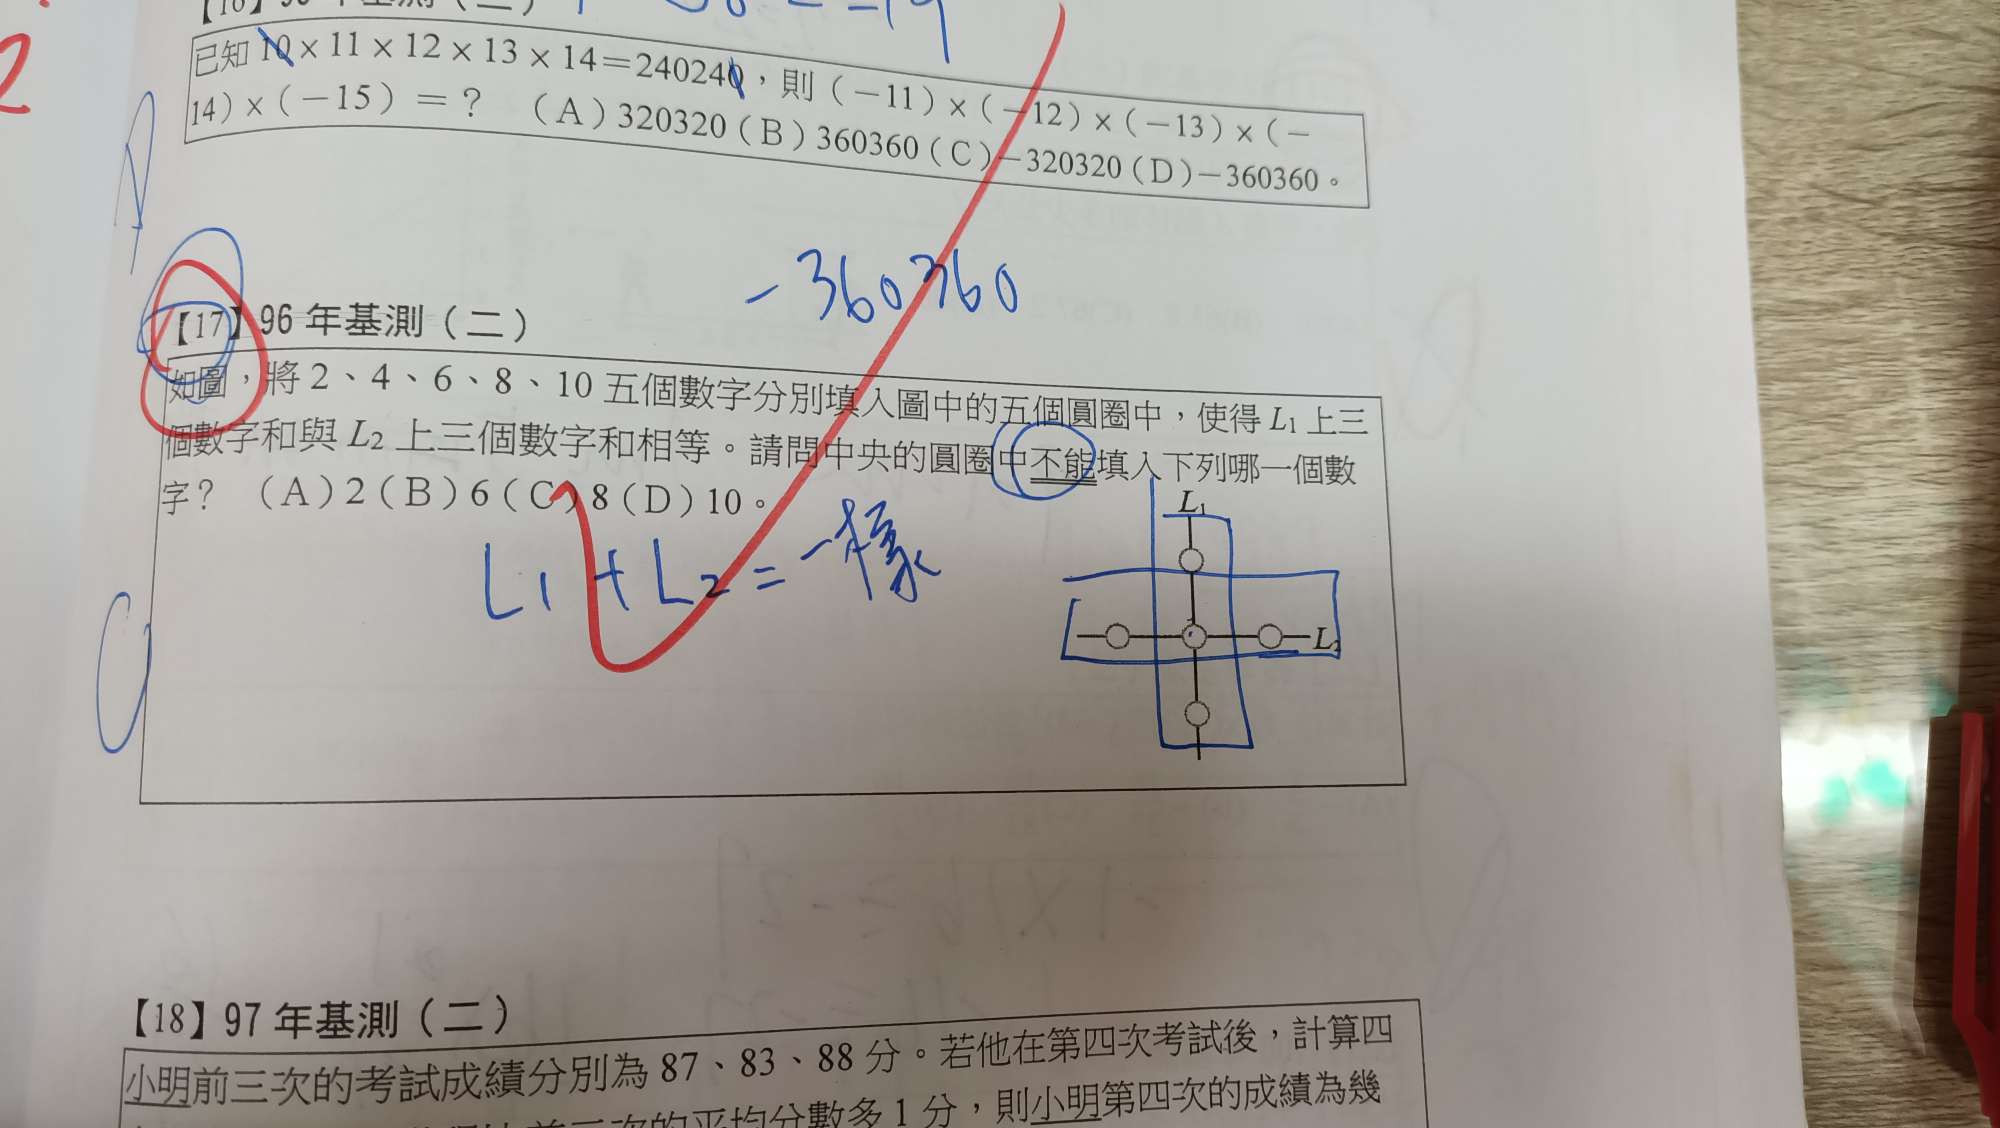 2
已知 10×11×12×13×14=240240，則（-11）×（-12）×（-13）×（-
14）×（-15）=？ （A）320320（B）360360（C）-320320（D）-360360。
-360360
【17】96 年基測（二）
如圖，將 2、4、6、8、10 五個數字分別填入圖中的五個圓圈中，使得 L₁ 上三
個數字和與 L₂ 上三個數字和相等。請問中央的圓圈中不能填入下列哪一個數
字？ （A）2（B）6（C）8（D）10。
L₁
L1 + L2 = 一樣
L₂
C
【18】97 年基測（二）
小明前三次的考試成績分別為 87、83、88 分。若他在第四次考試後，計算四
的平均分數多 1 分，則小明第四次的成績為幾